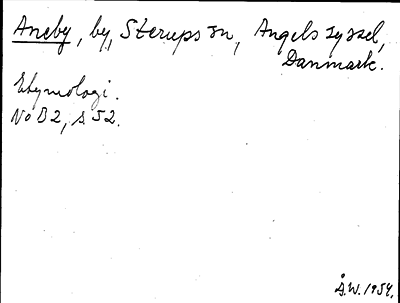 Aneby, by, Sterups sn, Angels syssel,
Danmark.
Etymologi.
NoB2, s 52.
Å.W. 1954.